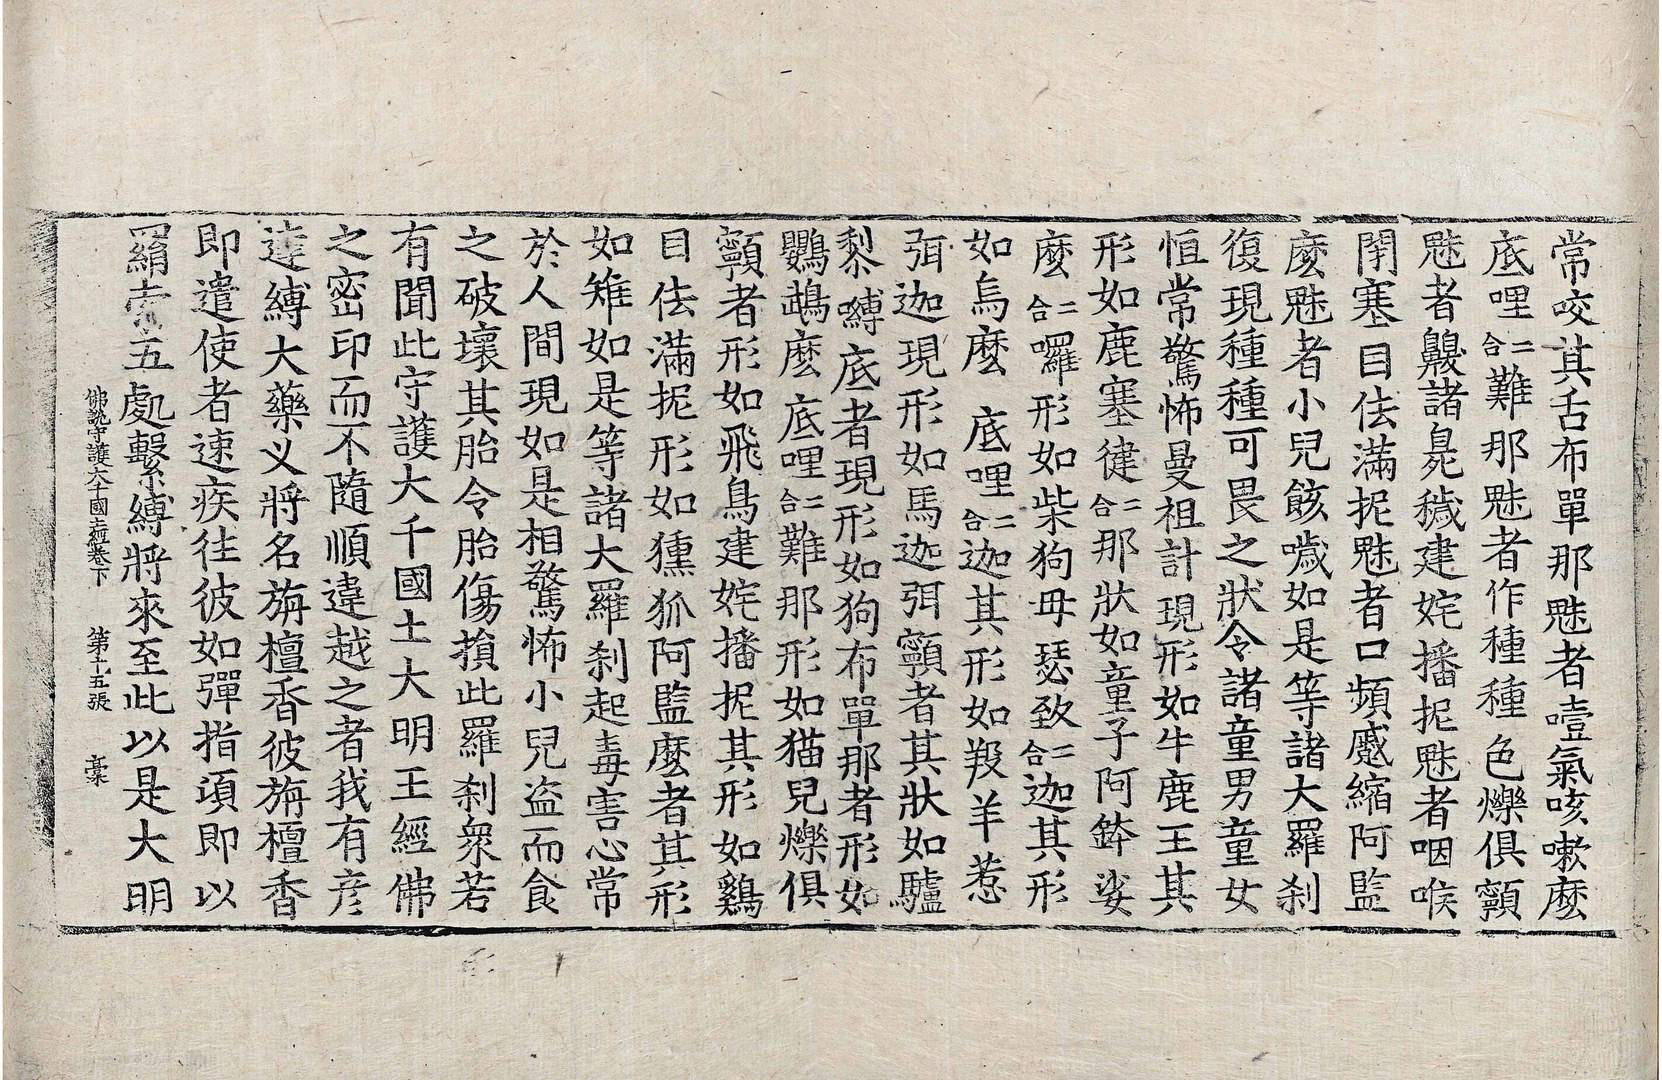 常咬其舌布單那魅者噎氣咳嗽麼
底哩二合難那魅者作種種色爍俱顐
魅者齅諸臭穢建姹播抳魅者咽喉
閉塞目佉滿抳魅者口頻蹙縮阿監
麼魅者小兒餩噦如是等諸大羅刹
復現種種可畏之狀令諸童男童女
恒常驚怖曼祖計現形如牛鹿王其
形如鹿塞建二合那狀如童子阿鉢娑
麼二合囉形如柴狗母瑟致二合迦其形
如烏麼底哩二合迦其形如羖羊惹
弭迦現形如馬迦弭顐者其狀如驢
黎嚩底者現形如狗布單那者形如
鸚鵡麼底哩二合難那形如猫兒爍俱
顐者形如飛鳥建姹播抳其形如鷄
目佉滿抳形如獯狐阿監麼者其形
如雉如是等諸大羅刹起毒害心常
於人間現如是相驚怖小兒盗而食
之破壞其胎令胎傷損此羅刹衆若
有聞此守護大千國土大明王經佛
之密印而不隨順違越之者我有彦
達縛大藥义將名旃檀香彼旃檀香
即遣使者速疾往彼如彈指頃即以
羂索五處繫縛將來至此以是大明
佛說守護大千國土經卷下 第十五張 槀